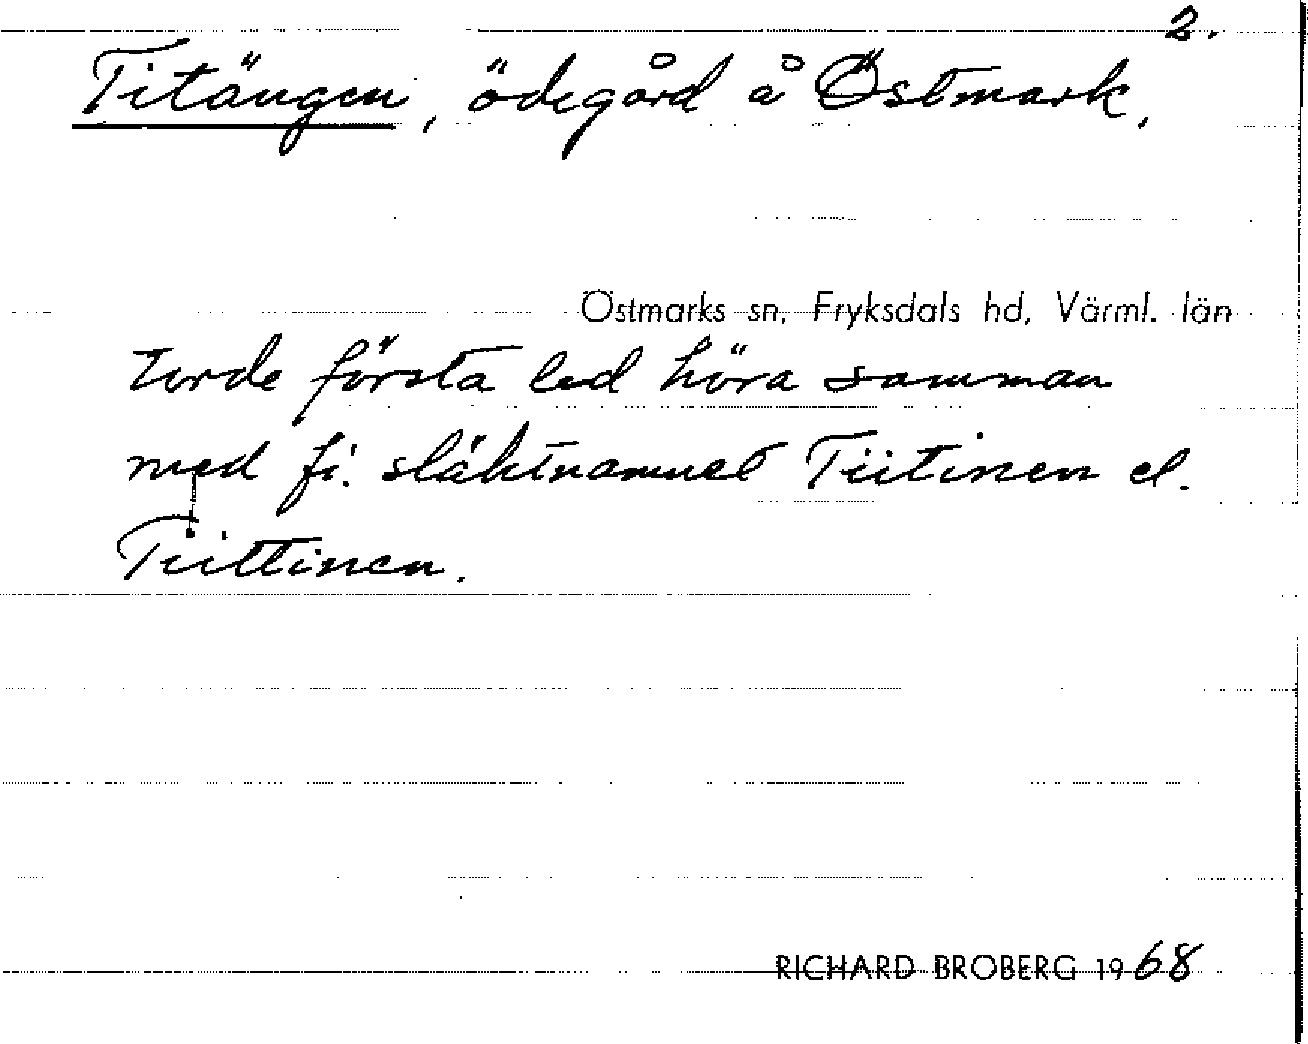 2.
Titängen, ödegård å Östmark.
Östmarks sn, Fryksdals hd, Värml. län
Torde första led höra samman
med fi. släktnamnet Tiitinen el.
Tiittinen.
RICHARD BROBERG 1968